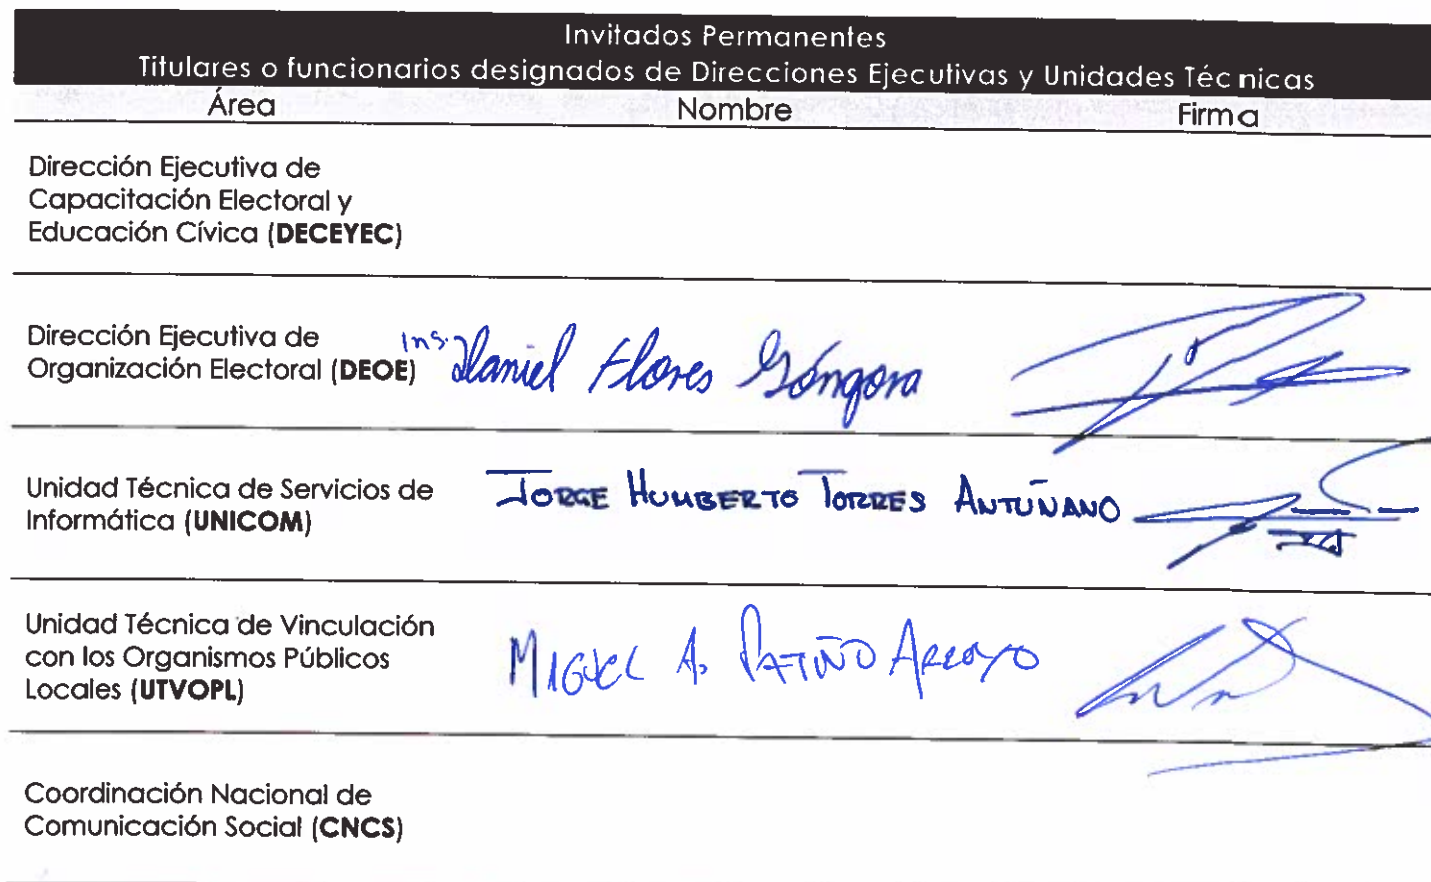 Invitados Permanentes
Titulares o funcionarios designados de Direcciones Ejecutivas y Unidades Técnicas
Área Nombre Firma
Dirección Ejecutiva de
Capacitación Electoral y
Educación Cívica (DECEYEC)
Dirección Ejecutiva de
Organización Electoral (DEOE) Daniel Flores Góngora
Unidad Técnica de Servicios de JORGE HUMBERTO TORRES ANTUÑANO
Informática (UNICOM)
Unidad Técnica de Vinculación
con los Organismos Públicos MIGUEL A. PATIÑO ARROYO
Locales (UTVOPL)
Coordinación Nacional de
Comunicación Social (CNCS)